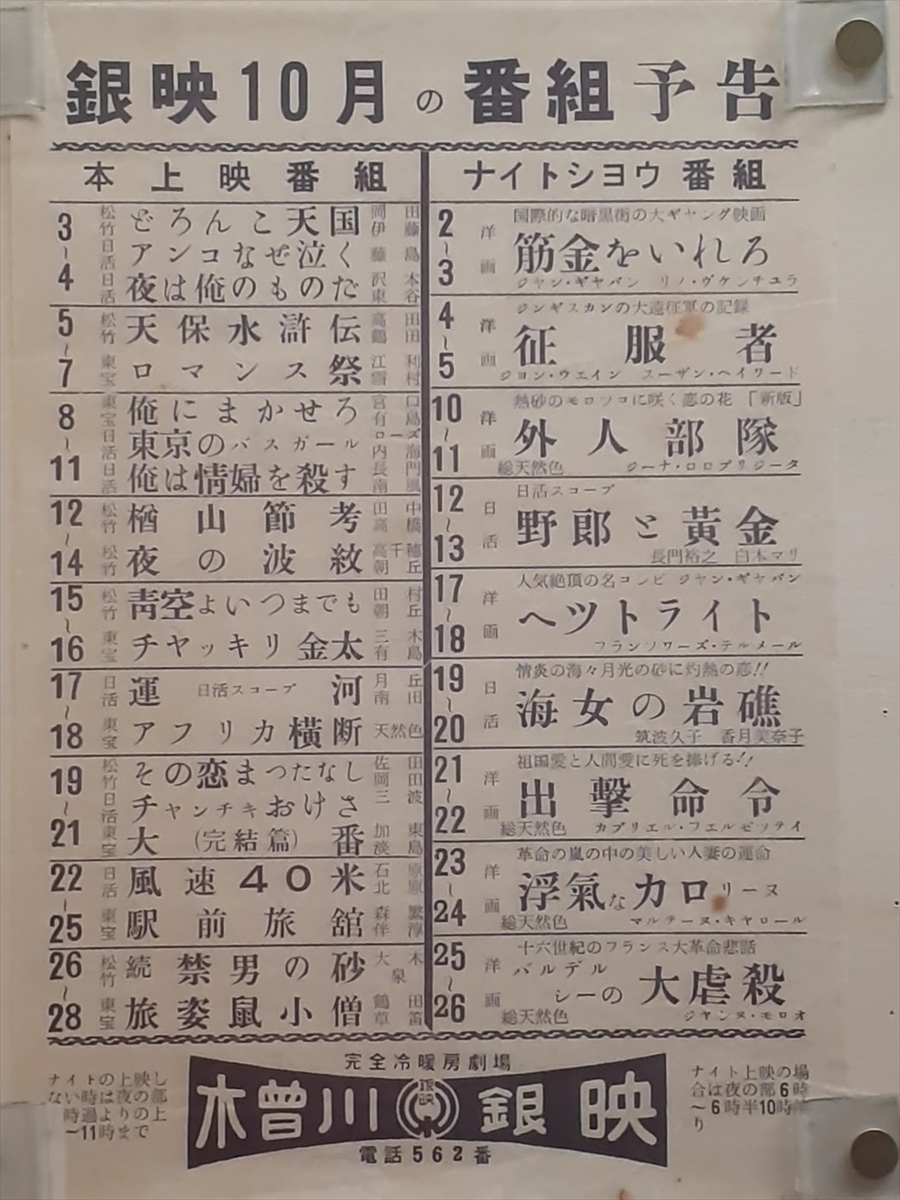 銀映10月の番組予告
本上映番組
3~4
松竹 どろんこ天国 岡田 伊藤
日活 アンコなぜ泣く 藤島
日活 夜は俺のものだ 沢本 東谷
5~7
松竹 天保水滸伝 高田 鶴田
東宝 ロマンス祭 江利 雪村
8~11
東宝 俺にまかせろ 宮口 有島
日活 東京のバスガール ローズ 内海
日活 俺は情婦を殺す 長門 南風
12~14
松竹 楢山節考 田中 高橋
松竹 夜の波紋 高千穂 朝丘
15~16
松竹 青空よいつまでも 田村 朝丘
東宝 チヤッキリ金太 三木 有島
17~18
日活 運河 日活スコープ 月丘 南田
東宝 アフリカ横断 天然色
19~21
松竹 その恋まつたなし 佐田 岡田
日活 チャンチキおけさ 三波
東宝 大番(完結篇) 加東 淡島
22~25
日活 風速40米 石原 北原
東宝 駅前旅舘 森繁 伴淳
26~28
松竹 続禁男の砂 大木 泉
東宝 旅姿鼠小僧 鶴田 草笛
ナイトシヨウ番組
2~3 洋画
国際的な暗黒街の大ギャング映画
筋金をいれろ
ジャン・ギャバン リノ・ヴケンチユラ
4~5 洋画
ジンギスカンの大遠征軍の記録
征服者
ジヨン・ウエイン スーザン・ヘイワード
10~11 洋画
熱砂のモロツコに咲く恋の花「新版」
外人部隊
総天然色 ジーナ・ロロブリジータ
12~13 日活
日活スコープ
野郎と黄金
長門裕之 白木マリ
17~18 洋画
人気絶頂の名コンビ ジャン・ギャバン
ヘツトライト
フランソワーズ・テルメール
19~20 日活
情炎の海々月光の砂に灼熱の恋!!
海女の岩礁
筑波久子 香月美奈子
21~22 洋画
祖国愛と人間愛に死を捧げる!!
出撃命令
総天然色 カブリエル・フエルゼッテイ
23~24 洋画
革命の嵐の中の美しい人妻の運命
浮氣なカロリーヌ
総天然色 マルテーヌ・キヤロール
25~26 洋画
十六世紀のフランス大革命悲話
バルデルシーの大虐殺
総天然色 ジヤンヌ・モロオ
ナイトの上映し
ない時は夜の部
時過より
~11時まで
完全冷暖房劇場
木曽川 銀映 銀映
電話562番
ナイト上映の場
合は夜の部6時
~6時半10時
り